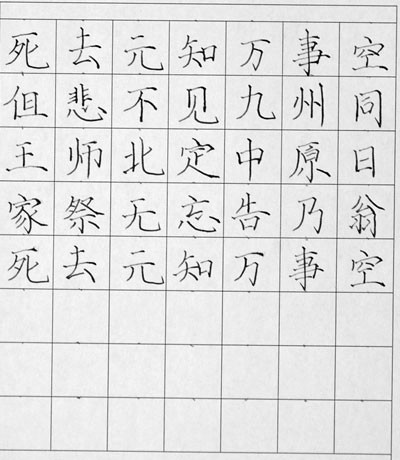 死去元知万事空
但悲不见九州同
王师北定中原日
家祭无忘告乃翁
死去元知万事空